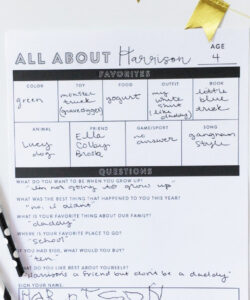 ALL ABOUT Harrison
AGE
4
FAVORITES
COLOR TOY FOOD OUTFIT BOOK
green monster truck (gravedigger) yogurt my white shirt (like daddy) little blue truck
ANIMAL FRIEND GAME/SPORT SONG
Lucy dog Ella Colby Brook no answer gangnam style
QUESTIONS
WHAT DO YOU WANT TO BE WHEN YOU GROW UP?
"im not going to grow up"
WHAT WAS THE BEST THING THAT HAPPENED TO YOU THIS YEAR?
"no, i didnt"
WHAT IS YOUR FAVORITE THING ABOUT OUR FAMILY?
"daddy"
WHERE IS YOUR FAVORITE PLACE TO GO?
"school"
IF YOU HAD $100, WHAT WOULD YOU BUY?
"ten"
WHAT DO YOU LIKE BEST ABOUT YOURSELF?
a friend but don't be a daddy"
SIGN YOUR NAME